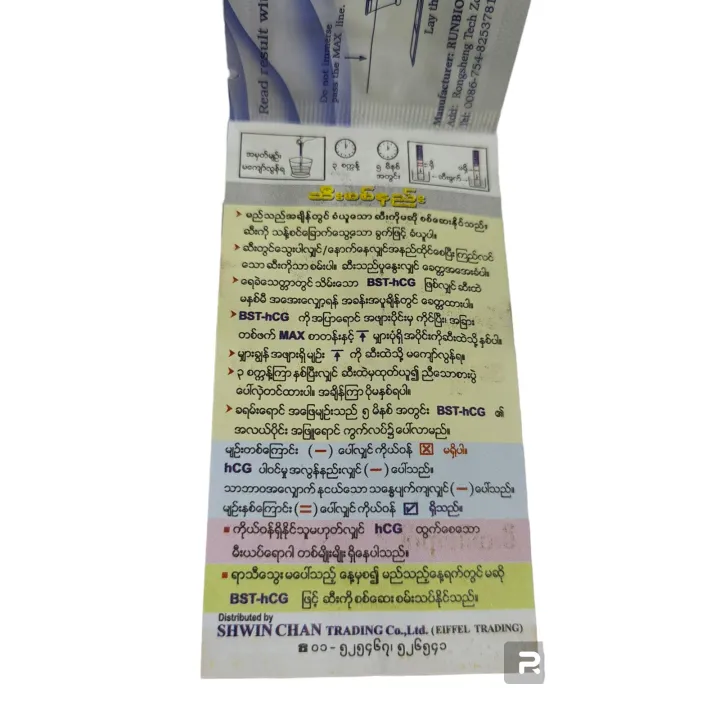 Read result wi
Do not immerse
pass the MAX line.
Lay th
Manufacturer: RUNBIO
Add: Rongsheng Tech Zo
Tel: 0086-754-8253781
အမှတ်မျဉ်း
မကျော်လွန်ရ
၃ စက္ကန့်
၅ မိနစ်
အတွင်း
ရှိ
မရှိ
ဆီးစစ်နည်း
➤ မည်သည့်အချိန်တွင် ခံယူသော ဆီးကိုမဆို စစ်ဆေးနိုင်သည်။
ဆီးကို သန့်စင်ခြောက်သွေ့သော ခွက်ဖြင့် ခံယူပါ။
➤ ဆီးတွင်သွေးပါလျှင်/နောက်နေလျှင်အနည်ထိုင်စေပြီးကြည်လင်
သော ဆီးကိုသာ စမ်းပါ။ ဆီးသည်ပူနွေးလျှင် ခေတ္တအအေးခံပါ။
➤ ရေခဲသေတ္တာတွင် သိမ်းသော BST-hCG ဖြစ်လျှင် ဆီးထဲ
မနှစ်မီ အအေးလျော့ရန် အခန်းအပူချိန်တွင် ခေတ္တထားပါ။
➤ BST-hCG ကို အပြာရောင် အဖျားပိုင်းမှ ကိုင်ပြီး၊ အခြား
တစ်ဖက် MAX စာတန်းနှင့် ↑ များပုံရှိ အပိုင်းကိုဆီးထဲသို့ နှစ်ပါ။
➤ မျှားချွန် အဖျားရှိ မျဉ်း ↑ ကို ဆီးထဲသို့ မကျော်လွန်ရ။
➤ ၃ စက္ကန့်ကြာ နှစ်ပြီးလျှင် ဆီးထဲမှထုတ်ယူ၍ ညီသောစားပွဲ
ပေါ်လှဲတင်ထားပါ။ အချိန်ကြာ ပိုမနှစ်ရပါ။
➤ ခရမ်းရောင် အဖြေမျဉ်းသည် ၅ မိနစ် အတွင်း BST-hCG ၏
အလယ်ပိုင်း အဖြူရောင် ကွက်လပ်၌ ပေါ်လာမည်။
မျဉ်းတစ်ကြောင်း (—) ပေါ်လျှင် ကိုယ်ဝန် ☒ မရှိပါ။
hCG ပါဝင်မှု အလွန်နည်းလျှင် (—) ပေါ်သည်။
သာဘာဝအလျှောက် နုငယ်သော သန္ဓေပျက်ကျလျှင် (—) ပေါ်သည်။
မျဉ်းနှစ်ကြောင်း (=) ပေါ်လျှင် ကိုယ်ဝန် ☑ ရှိသည်။
■ ကိုယ်ဝန်ရှိနိုင်သူမဟုတ်လျှင် hCG ထွက်စေသော
မီးယပ်ရောဂါ တစ်မျိုးမျိုး ရှိနေပါသည်။
■ ရာသီသွေး မပေါ်သည့် နေ့မှစ၍ မည်သည့်နေ့ရက်တွင် မဆို
BST-hCG ဖြင့် ဆီးကို စစ်ဆေး စမ်းသပ်နိုင်သည်။
Distributed by
SHWIN CHAN TRADING Co.,Ltd. (EIFFEL TRADING)
☎ ၀၁ - ၅၂၅၄၆၇၊ ၅၂၆၅၄၁